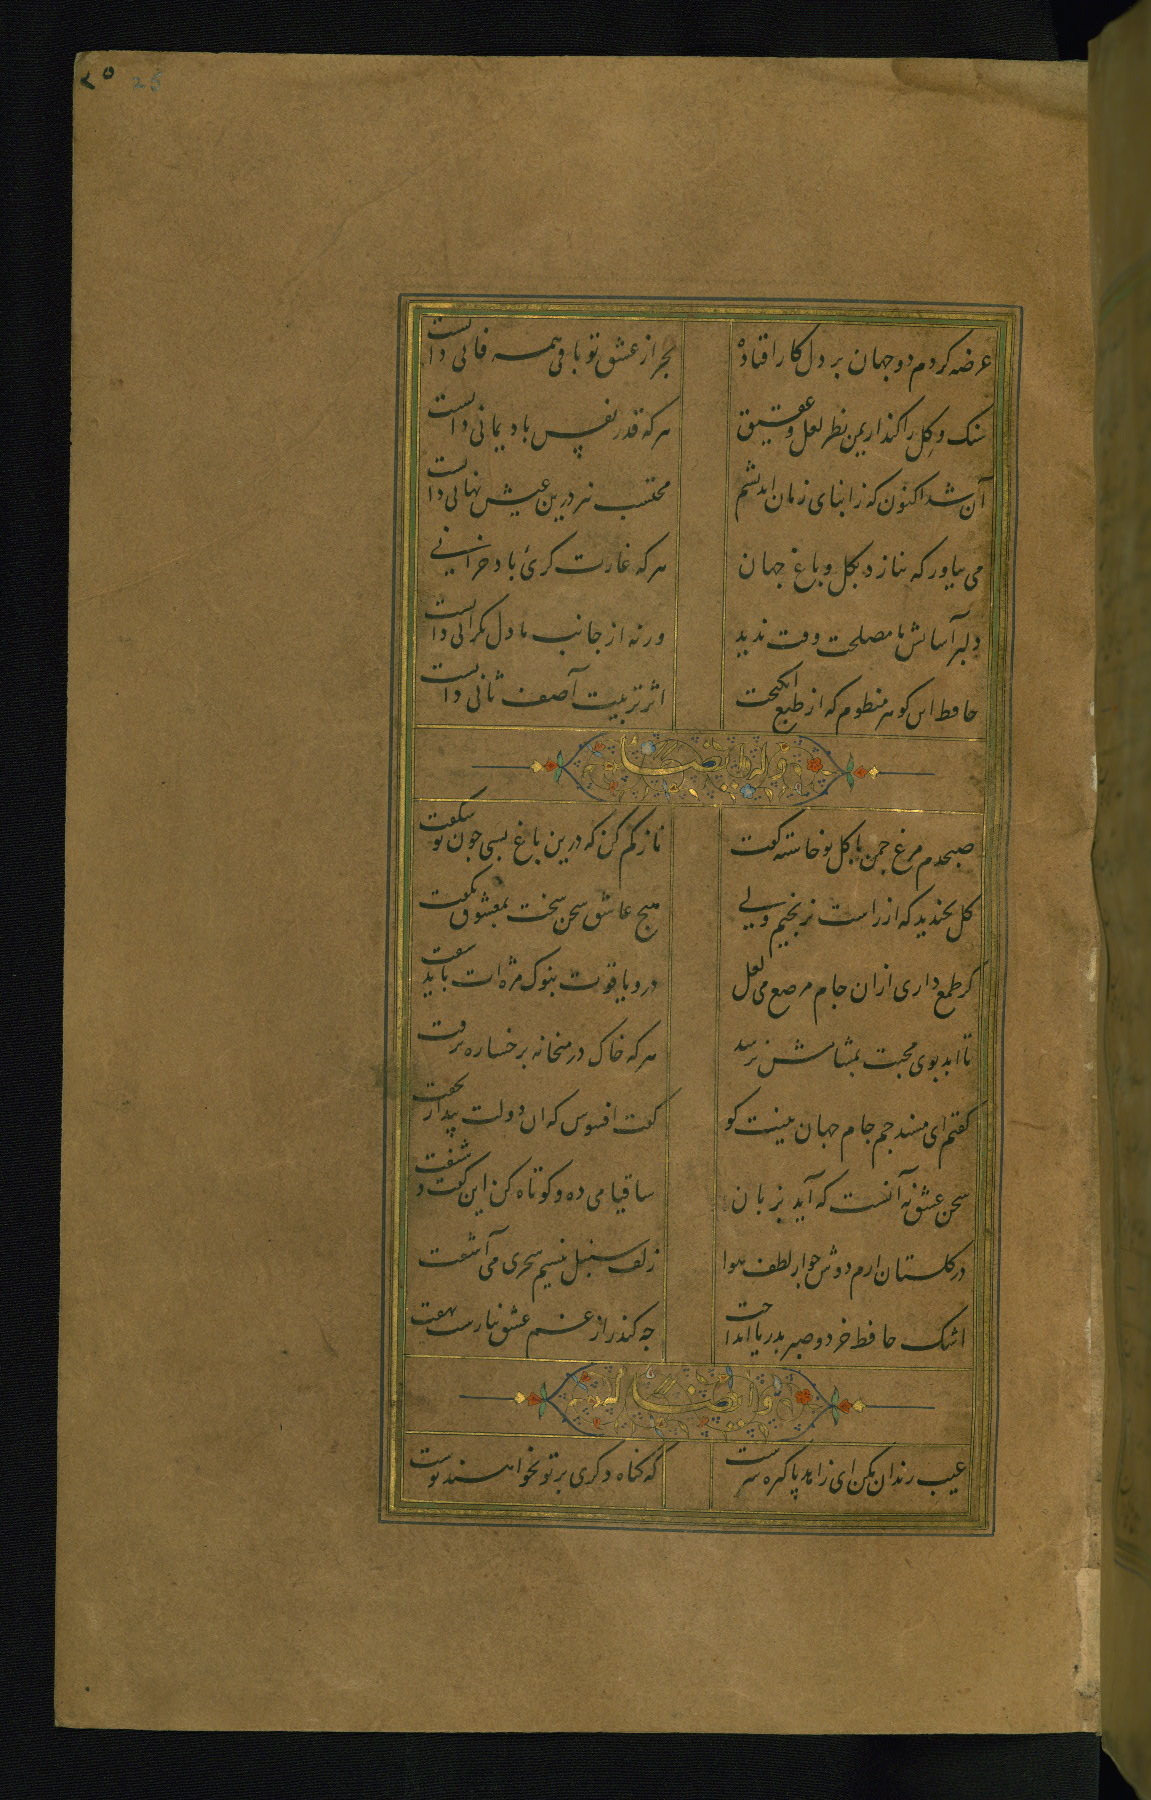 ۲۵ 25
عرضه کردم دو جهان بر دل کار افتاده بجز از عشق تو باقی همه فانی دانست
سنک و کِل را کند از یمن نظر لعل و عقیق هر که قدر نفس باد یمانی دانست
آن شد اکنون که ز ابنای زمان اندیشم محتسب نیز درین عیش نهانی دانست
می بیاور که ننازد بکل و باغ جهان هر که غارت کرئ باد خزانی
دلبر آسایش ما مصلحت وقت ندید ورنه از جانب ما دل نکرانی دانست
حافظ این کوهر منظوم که از طبع انکیخت اثر تربیت آصف ثانی دانست
وله ایضا
صبحدم مرغ چمن با کل نوخاسته کفت ناز کم کن که درین باغ بسی چون تو شکفت
کل بخندید که از راست نرنجیم ولی هیچ عاشق سخن سخت بمعشوق نکفت
کر طمع داری ازان جام مرصع می لعل در و یاقوت بنوک مژه ات باید سفت
تا ابد بوی محبت بمشامش نرسد هر که خاک در میخانه برخساره نرفت
کفتم ای مسند جم جام جهان بینت کو کفت افسوس که ان دولت بیدار بخفت
سخن عشق نه آنست که آید بزبان ساقیا می ده و کوتاه کن این کفت و شنفت
در کلستان ارم دوش چو از لطف هوا زلف سنبل بنسیم سحری می آشفت
اشک حافظ خرد و صبر بدریا انداخت چه کند راز غم عشق نیارست نهفت
وایضا له
عیب رندان مکن ای زاهد پاکیزه سرشت که کناه دکری بر تو نخواهند نوشت